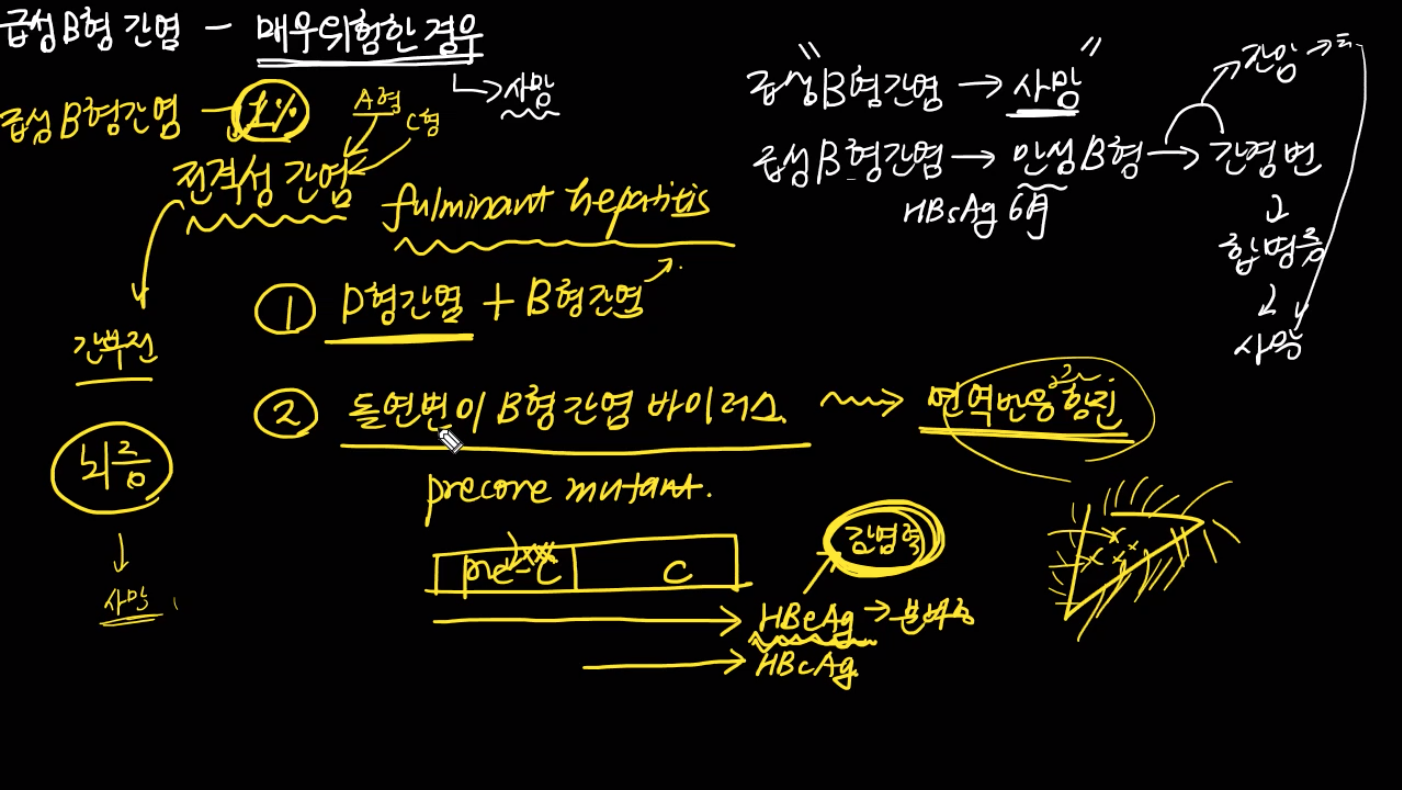 급성 B형 간염 - 매우 위험한 경우
→ 사망
급성 B형간염 - 1%
A형
C형
전격성 간염
fulminant hepatitis
간부전
뇌증
↓
사망
① D형간염 + B형간염
② 돌연변이 B형간염 바이러스. → 면역반응 항진
precore mutant.
pre-C C
감염력
HBeAg →
HBcAg
" "
급성 B형간염 → 사망
급성 B형간염 → 만성 B형 → 간경변
HBsAg 6月
간암 →
합병증
사망